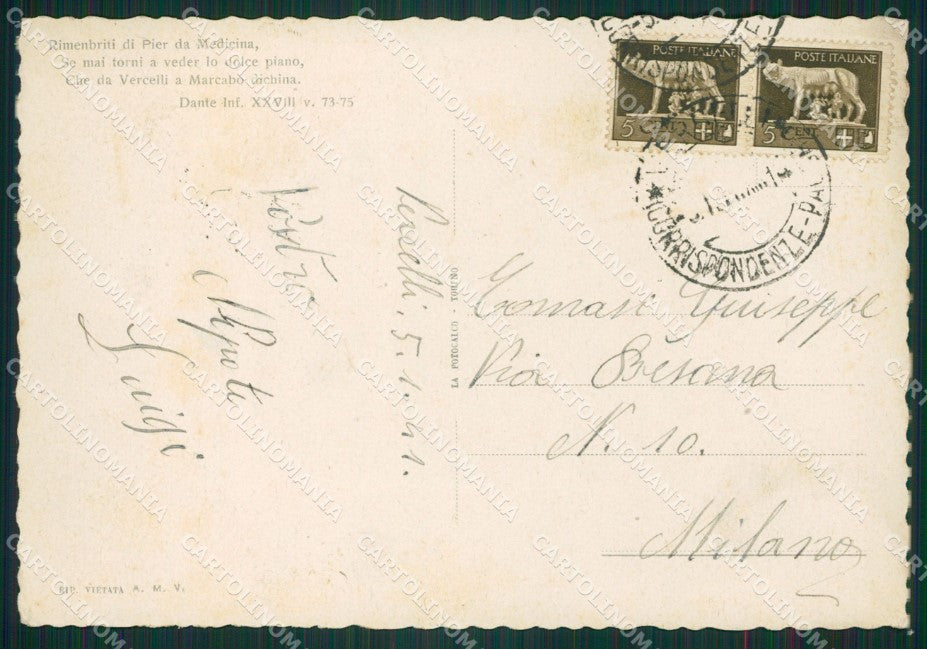 Rimenbriti di Pier da Medicina,
Se mai torni a veder lo dolce piano,
Che da Vercelli a Marcabò dichina.
Dante Inf. XXVIII v. 73-75
POSTE ITALIANE
5 CENT
POSTE ITALIANE
5 CENT
CORRISPONDENZE-PA
Vercelli. 5. 1. 941.
Vostro
Nipote
Luigi
LA FOTOCALCO - TORINO
Tomasi Giuseppe
Via
N. 10.
Milano
RIP. VIETATA A. M. V.
CARTOLINOMANIA